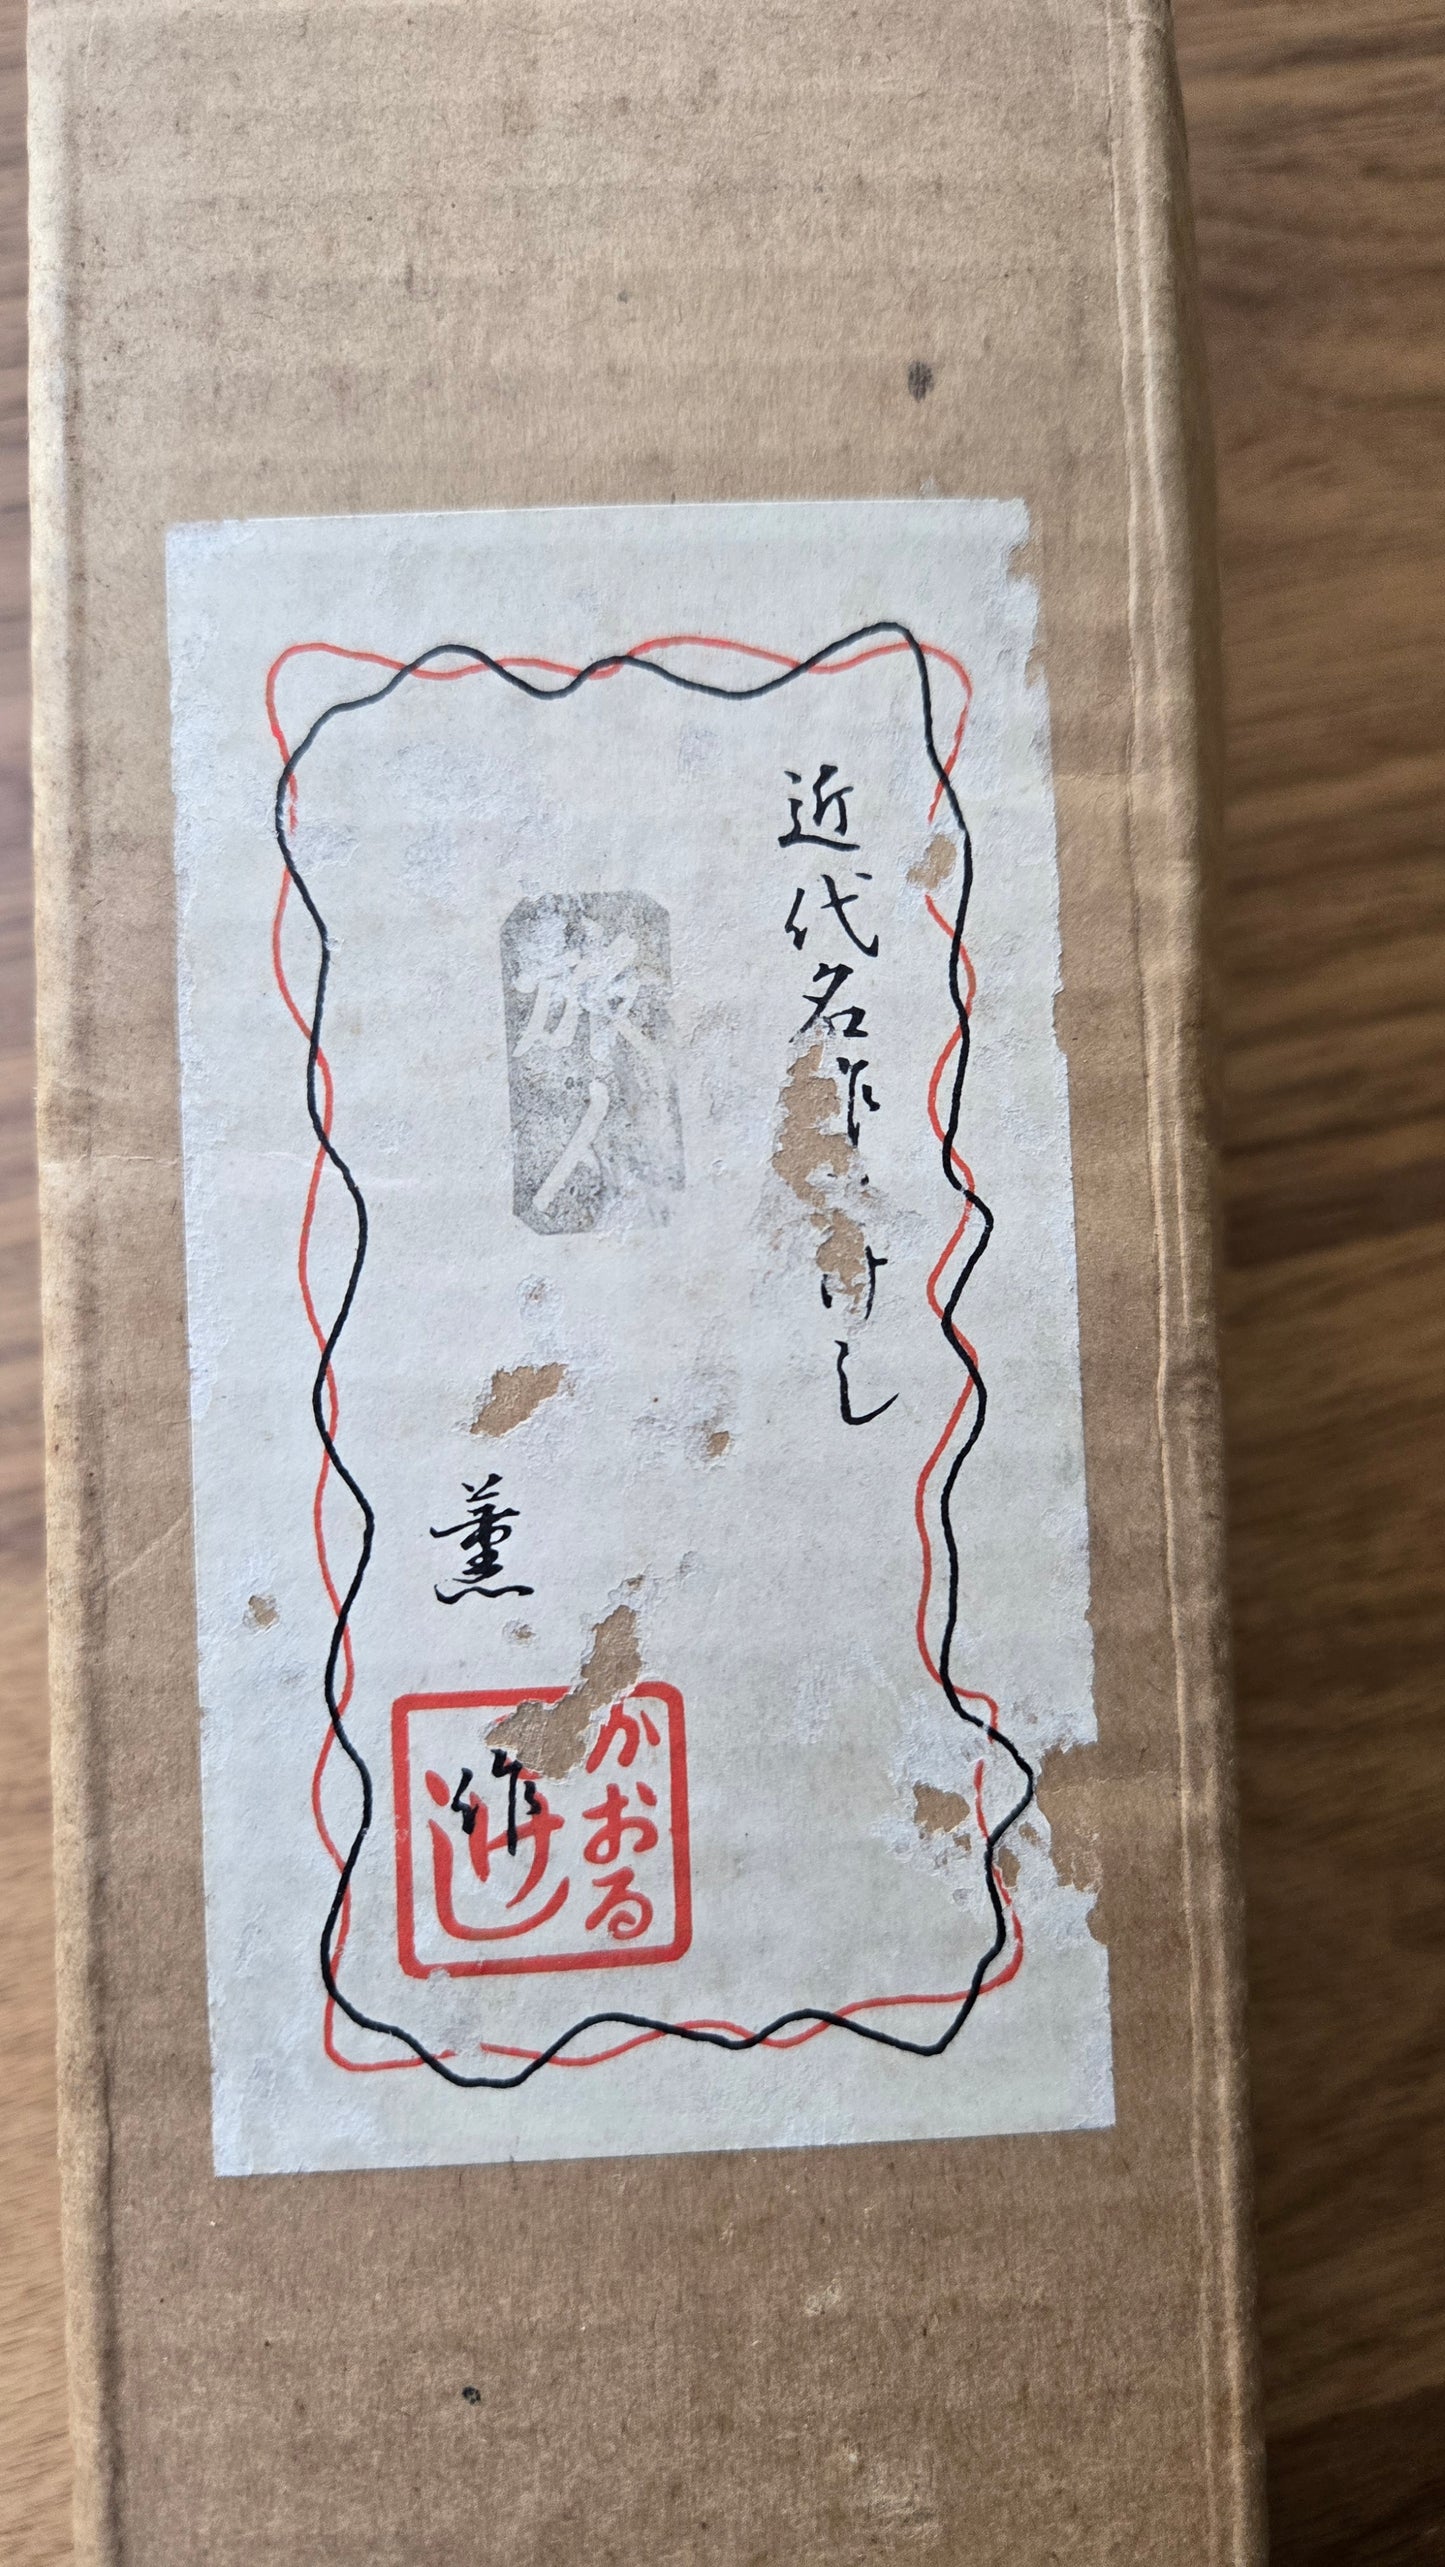 近代名作こけし
旅人
薫作
かおる
こけし